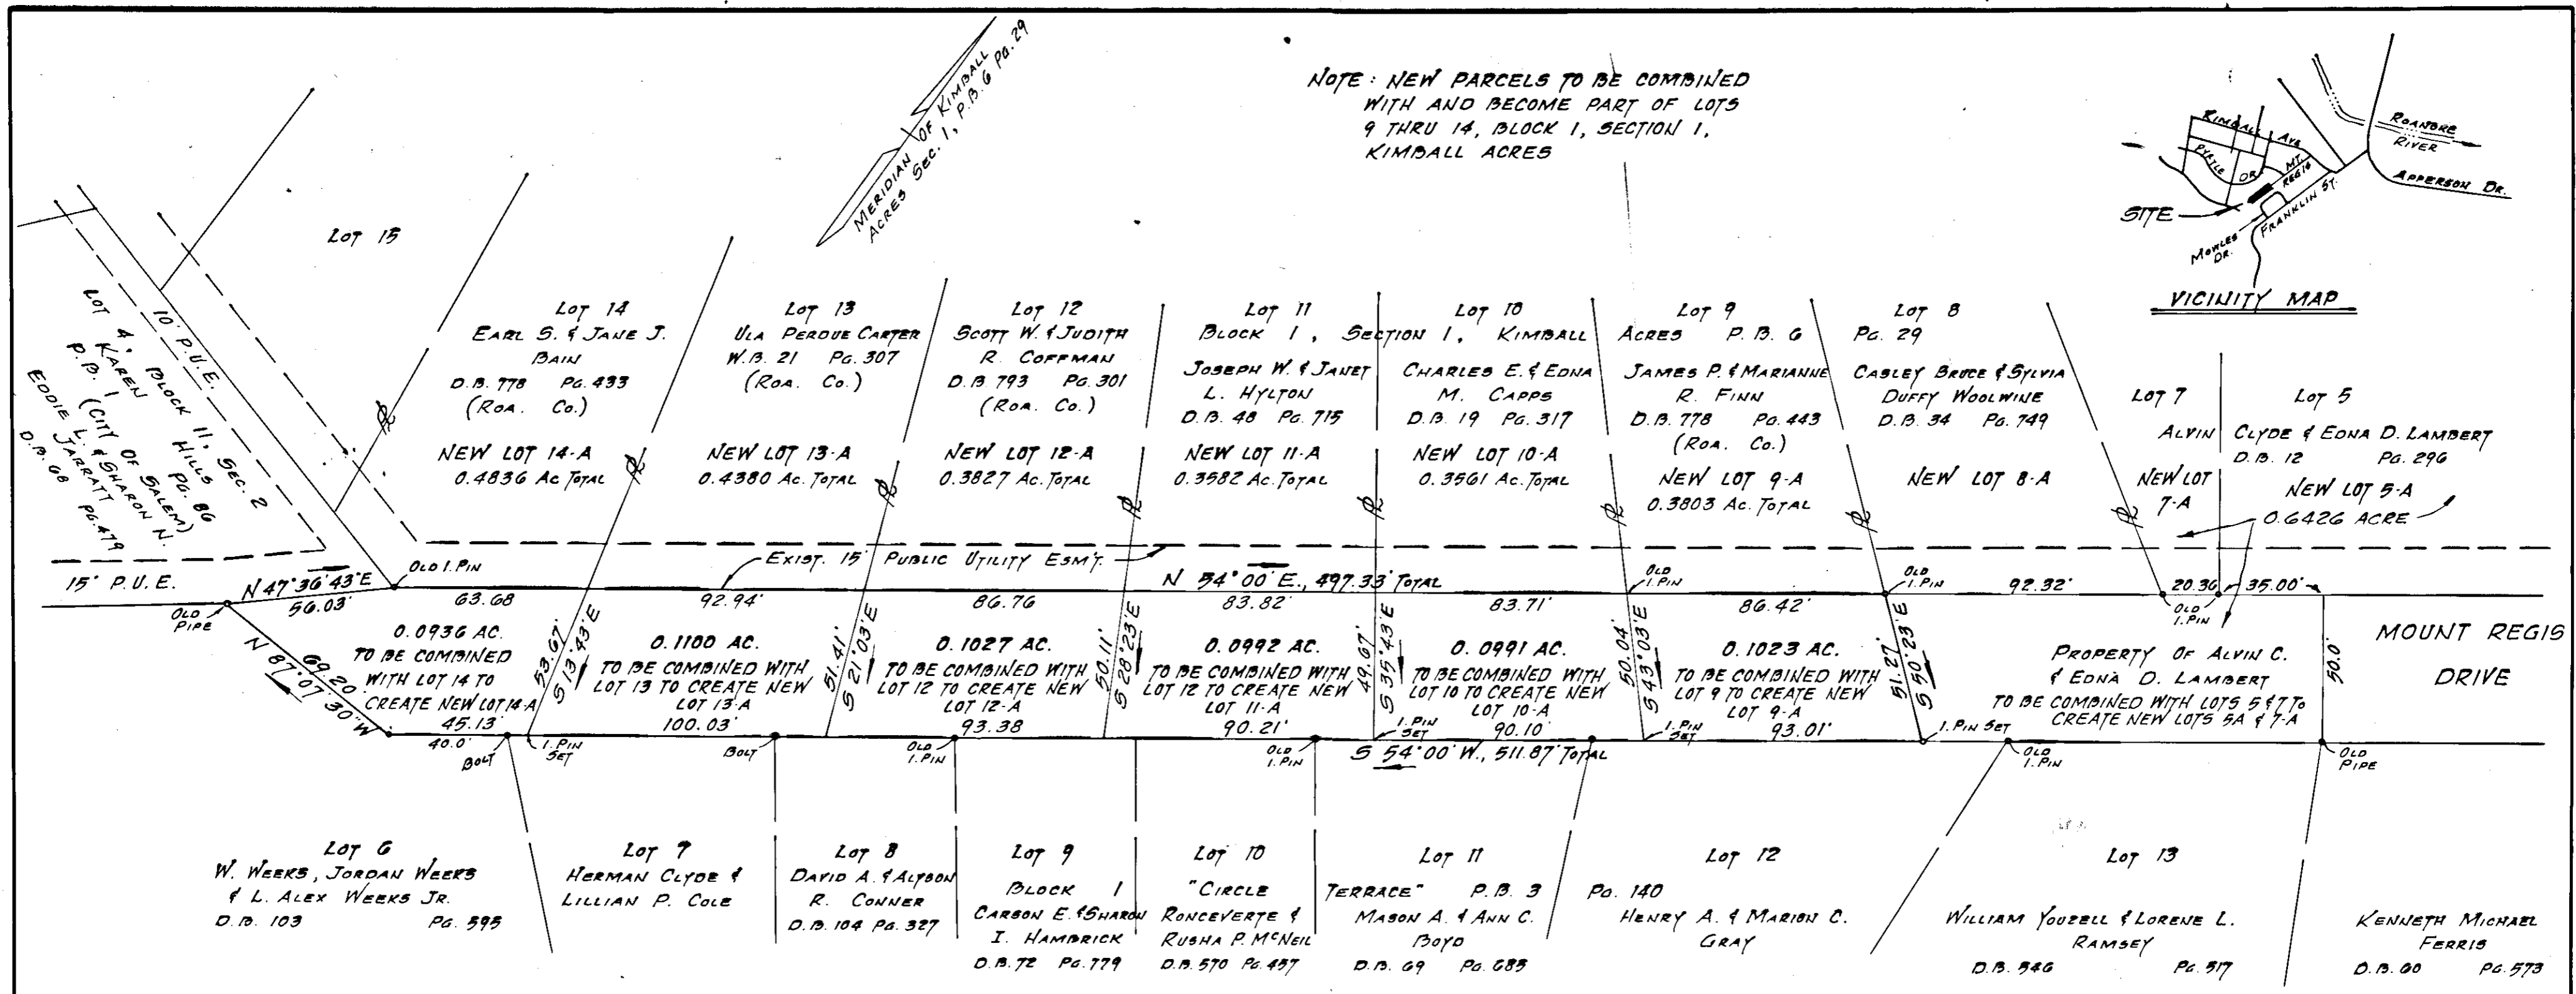 NOTE: NEW PARCELS TO BE COMBINED
WITH AND BECOME PART OF LOTS
9 THRU 14, BLOCK 1, SECTION 1,
KIMBALL ACRES
MERIDIAN OF KIMBALL
ACRES SEC. 1, P.B. 6 PG. 29
KIMBALL AVE
PYRTLE DR.
MT. REGIS
FRANKLIN ST.
MOWLES DR.
ROANOKE
RIVER
APPERSON DR.
SITE
VICINITY MAP
LOT 15
10' P.U.E.
LOT 4, BLOCK 11, SEC. 2
KAREN HILLS
P.B. 1 PG. 86
(CITY OF SALEM)
EDDIE L. & SHARON N.
JARRATT
D.B. 68 PG. 479
LOT 14
EARL S. & JANE J.
BAIN
D.B. 778 PG. 433
(ROA. CO.)
NEW LOT 14-A
0.4836 AC. TOTAL
LOT 13
ULA PERDUE CARTER
W.B. 21 PG. 307
(ROA. CO.)
NEW LOT 13-A
0.4380 AC. TOTAL
LOT 12
SCOTT W. & JUDITH
R. COFFMAN
D.B. 793 PG. 301
(ROA. CO.)
NEW LOT 12-A
0.3827 AC. TOTAL
LOT 11
BLOCK 1, SECTION 1, KIMBALL ACRES P.B. 6 PG. 29
JOSEPH W. & JANET
L. HYLTON
D.B. 48 PG. 715
NEW LOT 11-A
0.3582 AC. TOTAL
LOT 10
CHARLES E. & EDNA
M. CAPPS
D.B. 19 PG. 317
NEW LOT 10-A
0.3561 AC. TOTAL
LOT 9
JAMES P. & MARIANNE
R. FINN
D.B. 778 PG. 443
(ROA. CO.)
NEW LOT 9-A
0.3803 AC. TOTAL
LOT 8
CASLEY BRUCE & SYLVIA
DUFFY WOOLWINE
D.B. 34 PG. 749
NEW LOT 8-A
LOT 7
LOT 5
ALVIN CLYDE & EDNA D. LAMBERT
D.B. 12 PG. 296
NEW LOT
7-A
NEW LOT 5-A
0.6426 ACRE
EXIST. 15' PUBLIC UTILITY ESM'T.
15' P.U.E.
N 47°36'43"E
56.03'
OLD I. PIN
OLD
PIPE
N 54°00' E., 497.33' TOTAL
OLD
I. PIN
OLD
I. PIN
OLD
I. PIN
63.68
92.94'
86.76
83.82'
83.71'
86.42'
92.32'
20.36
35.00'
N 87°07'30"W
69.20'
0.0936 AC.
TO BE COMBINED
WITH LOT 14 TO
CREATE NEW LOT 14-A
53.67'
S 13°43'E
0.1100 AC.
TO BE COMBINED WITH
LOT 13 TO CREATE NEW
LOT 13-A
51.41'
S 21°03'E
0.1027 AC.
TO BE COMBINED WITH
LOT 12 TO CREATE NEW
LOT 12-A
50.11'
S 28°23'E
0.0992 AC.
TO BE COMBINED WITH
LOT 12 TO CREATE NEW
LOT 11-A
49.67'
S 35°43'E
0.0991 AC.
TO BE COMBINED WITH
LOT 10 TO CREATE NEW
LOT 10-A
50.04'
S 43°03'E
0.1023 AC.
TO BE COMBINED WITH
LOT 9 TO CREATE NEW
LOT 9-A
51.27'
S 50°23'E
PROPERTY OF ALVIN C.
& EDNA D. LAMBERT
TO BE COMBINED WITH LOTS 5 & 7 TO
CREATE NEW LOTS 5A & 7-A
50.0'
MOUNT REGIS
DRIVE
45.13'
100.03'
93.38
90.21'
90.10'
93.01'
40.0'
BOLT
I. PIN
SET
BOLT
OLD
I. PIN
OLD
I. PIN
I. PIN
SET
S 54°00' W., 511.87' TOTAL
I. PIN
SET
I. PIN SET
OLD
I. PIN
OLD
PIPE
LOT 6
W. WEEKS, JORDAN WEEKS
& L. ALEX WEEKS JR.
D.B. 103 PG. 595
LOT 7
HERMAN CLYDE &
LILLIAN P. COLE
LOT 8
DAVID A. & ALYSON
R. CONNER
D.B. 104 PG. 327
LOT 9
BLOCK 1 "CIRCLE TERRACE" P.B. 3 PG. 140
CARSON E. & SHARON
I. HAMBRICK
D.B. 72 PG. 779
LOT 10
RONCEVERTE &
RUSHA P. McNEIL
D.B. 570 PG. 457
LOT 11
MASON A. & ANN C.
BOYD
D.B. 69 PG. 685
LOT 12
HENRY A. & MARION C.
GRAY
LOT 13
WILLIAM YOUZELL & LORENE L.
RAMSEY
D.B. 546 PG. 517
KENNETH MICHAEL
FERRIS
D.B. 60 PG. 573